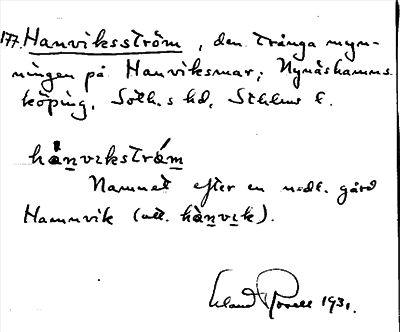 177. Hanviksström, den trånga myn-
ningen på Hanviksmar; Nynäshamns
köping, Soth.s hd, Sthlms l.
hànvɩkstrǿm
Namnet efter en nedl. gård
Hamnvik (utt. hànvɩk).
Erland Rosell 1931.